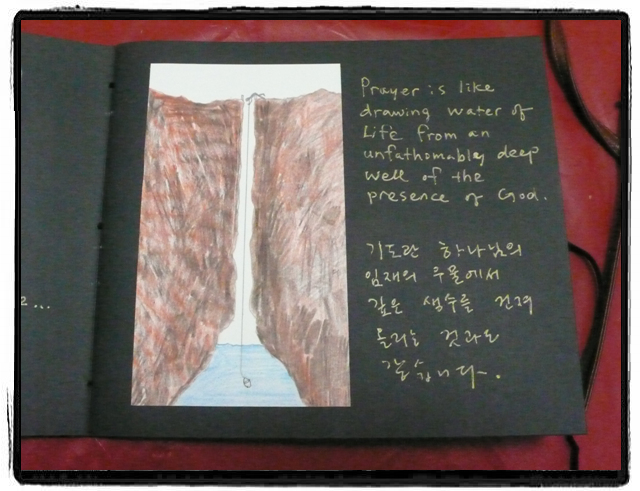 2...
Prayer is like
drawing water of
Life from an
unfathomably deep
well of the
presence of God.
기도란 하나님의
임재의 우물에서
깊은 생수를 건져
올리는 것과도
같습니다.